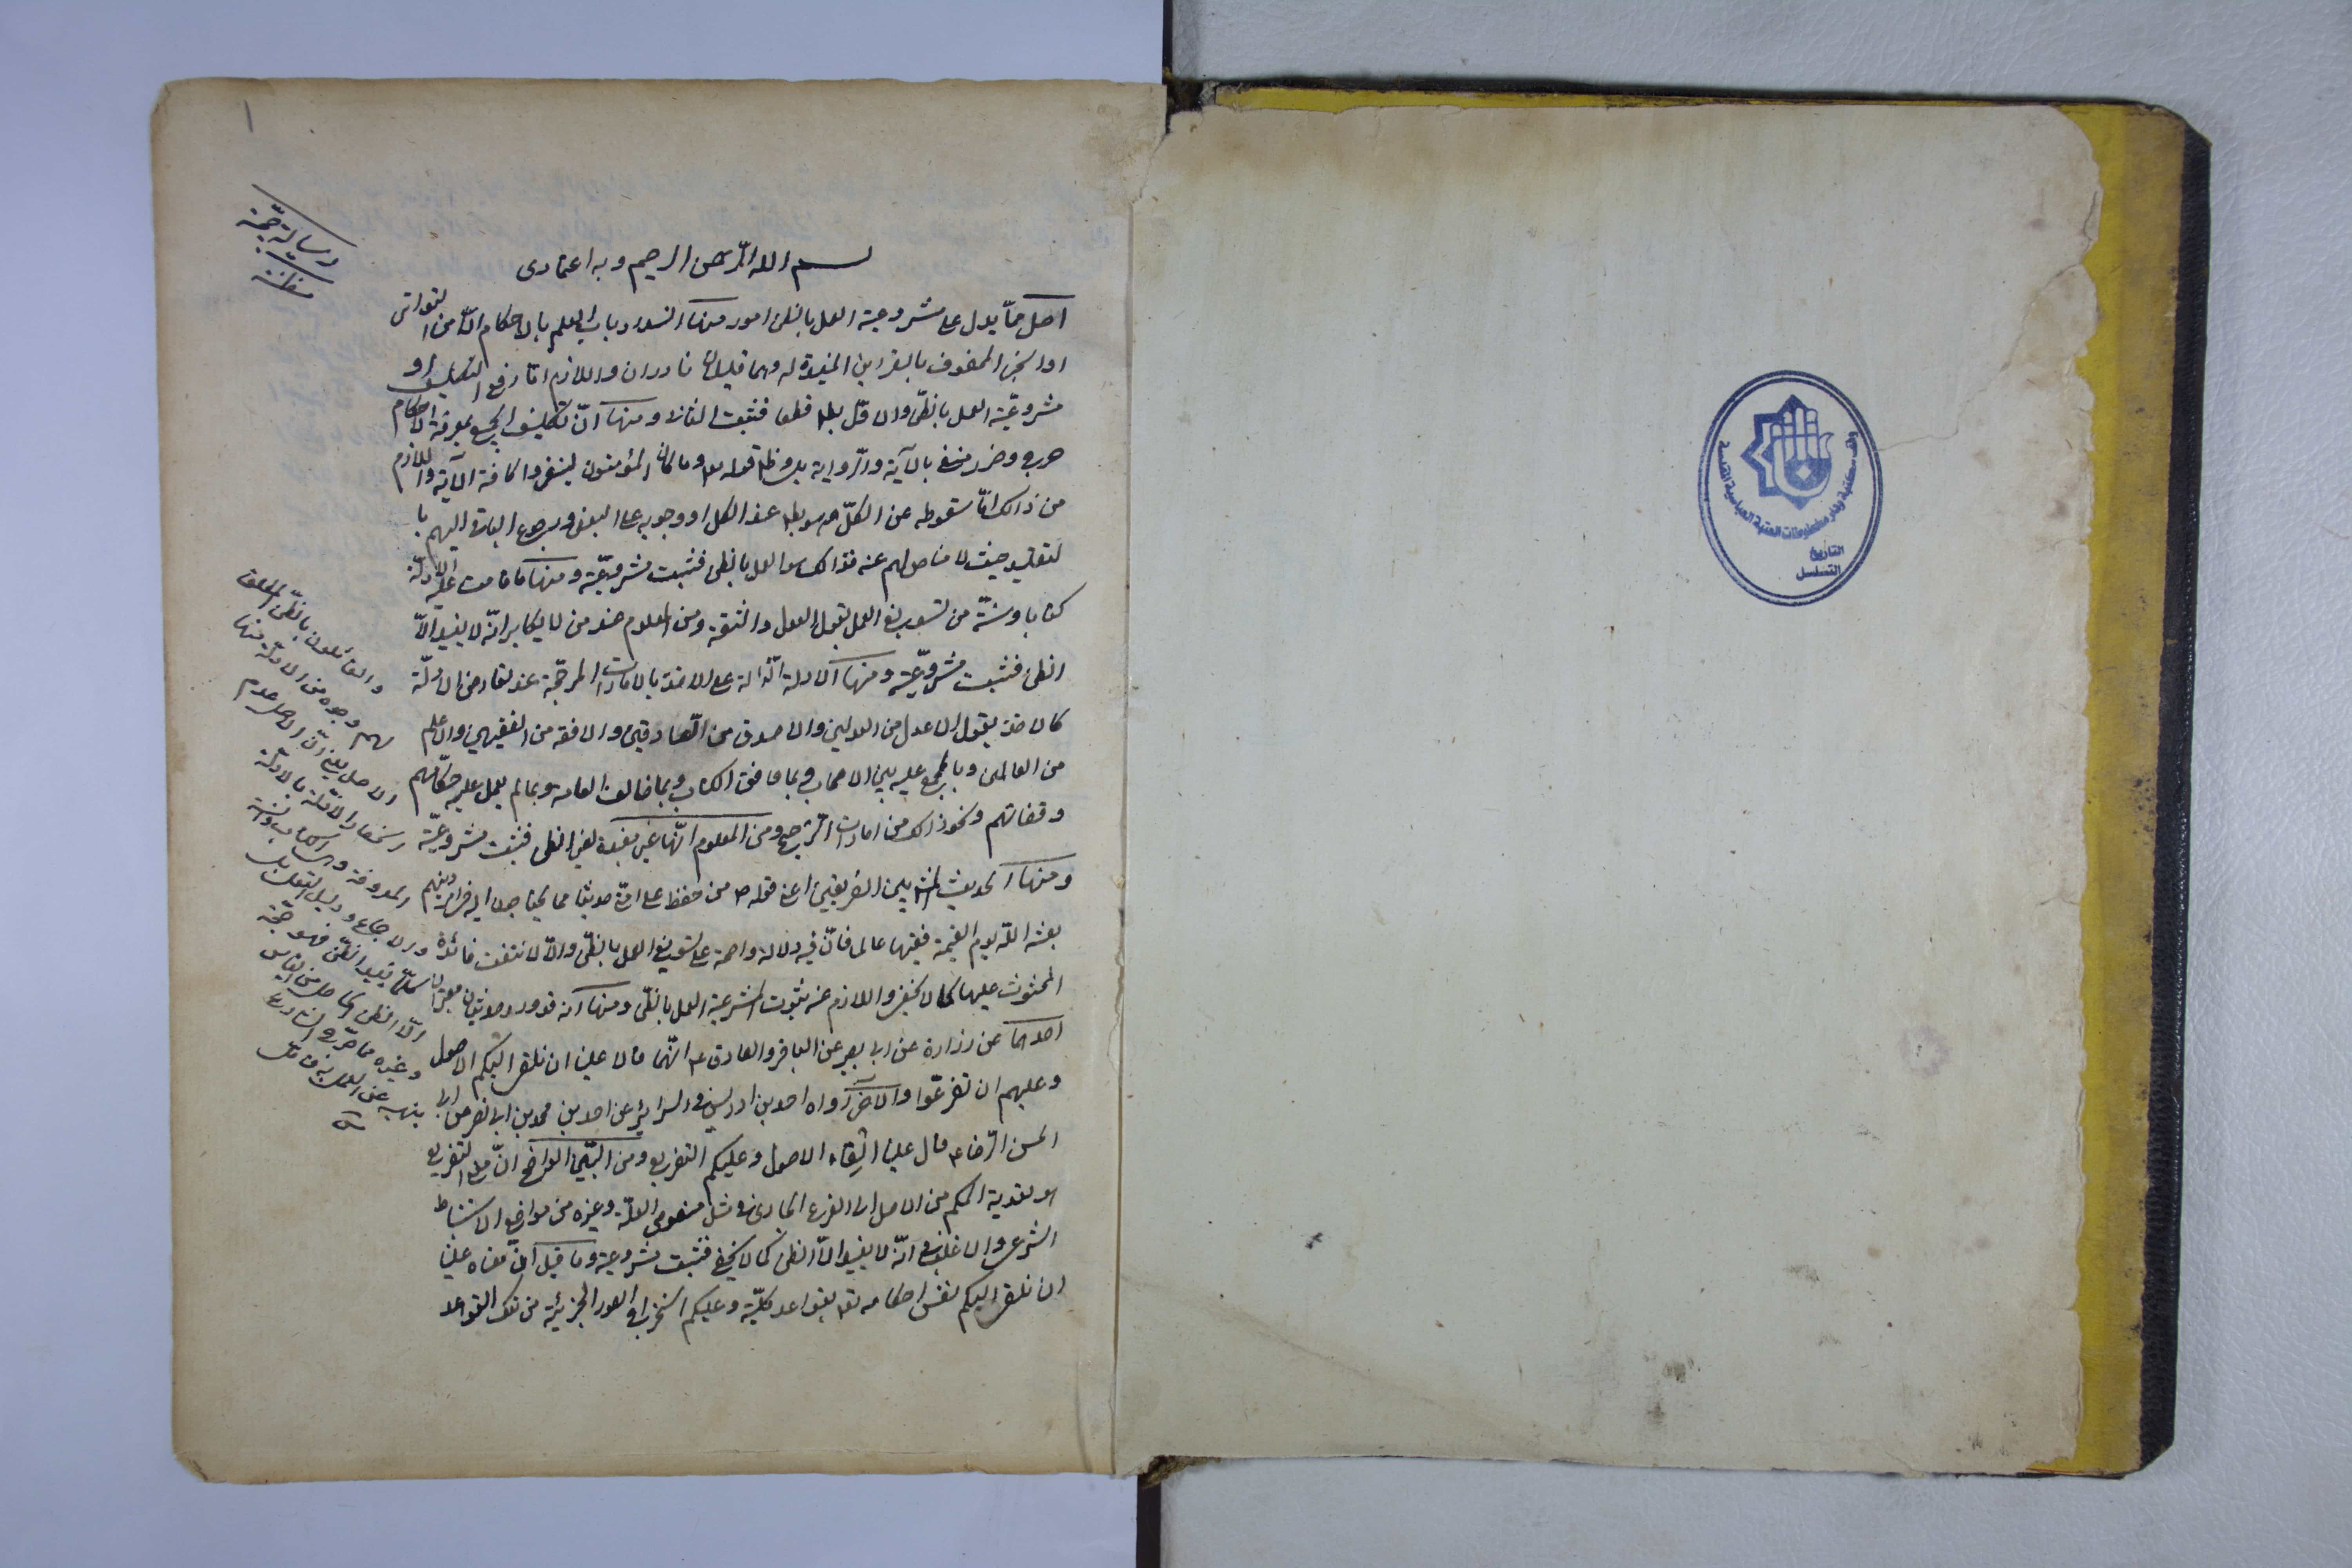 ١
رسالة حجية
مظنة
بسم الله الرحمن الرحيم وبه اعتمادى
اصل ممّا يدل على مشروعية العمل بالظن امور منها انسداد باب العلم بالاحكام الّا من التواتر
او الخبر المحفوف بالقراين المفيدة له وهما قليلان نادران واللازم امّا رفع التكليف او
مشروعيّة العمل بالظنّ والاوّل بط قطعا فثبت الثانى ومنها انّ تكليف الجميع بمعرفة الاحكام
حرج وضرر منفى بالآية والرّواية بل وظ قوله تع وما كان المؤمنون لينفروا كافة الآية واللازم
من ذالك امّا سقوطه عن الكلّ وهو بط عند الكل او وجوبه على البعض ورجوع الباقى اليهم با
لتقليد حيث لا مناص لهم عنه فذالك هو العمل بالظن فثبت مشروعيّته ومنها ما قامت عليه الادلّة
كتابا وسنّة من تسويغ العمل بقول العدل والثقة ومن المعلوم عند من لا يكابر انّه لا يفيد الّا
الظن فثبت مشروعيّته ومنها الادلة الدّالة على الاخذ بالامارات المرجّحة عند تعارض الادلّة
كالاخذ بقول الاعدل من العدلين والاصدق من الصّادقين والافقه من الفقيهين والاعلم
من العالمين وبالمجمع عليه بين الاصحاب وبما وافق الكتاب وبما خالف العامة وبما لم يعمل عليه حكّامهم
وقضاتهم ونحو ذالك من امارات الترجيح ومن المعلوم انّها غير مفيدة لغير الظن فثبت مشروعيّته
ومنها الحديث المش بين الفريقين اعنى قوله ص من حفظ على امّتى حديثا مما يحتاجون اليه فى امر دينهم
بعثه اللّه يوم القيمة فقيها عالما فانّ فيه دلالة واضحة على تسويغ العمل بالظنّ والّا لانتفت فائدة
المحثوث عليها كما لا يخفى واللازم عنه ثبوت المشرعية العمل بالظنّ ومنها انه قد ورد حديثان معتبران
احدهما عن زرارة عن ابى بصير عن الباقر والصادق ع انّهما قالا علينا ان نلقى اليكم الاصول
وعليهم ان تفرعّوا والاخر رواه احمد بن ادريس فى السرائر عن احمد بن محمد بن ابى نصر عن ابى
الحسن الرّضا ع قال علينا القاء الاصول وعليكم التفريع ومن البيّن الواضح انّ التفريع
هو تعدية الحكم من الاصل الى الفرع الجارى فى مثل منصوص العلّة وغيره من مواضع الاستنباط
الشرعى والاغلب فى انّه لا يفيد الّا الظن كما لا يخفى فثبت مشروعية وما قيل انّ معناه علينا
ان نلقى اليكم نفس احكامه تع بقواعد كليّة وعليكم استخراج الصور الجزئية من تلك القواعد
والقائلون بالظنّ المطلق
لهم وجوه من الادلة منها
الاصل يعنى انّ الاصل عدم
انحصار الادلّة بالادلّة
المعروفة وهى الكتاب والسنة
والاجماع ودليل العقل بل
كلّما يفيد الظنّ فهو حجّة
الّا الظن الحاصل من القياس
وغيره مما صرّح الشارع
بنهيه عن العمل به فتأمّل
التاريخ
التسلسل